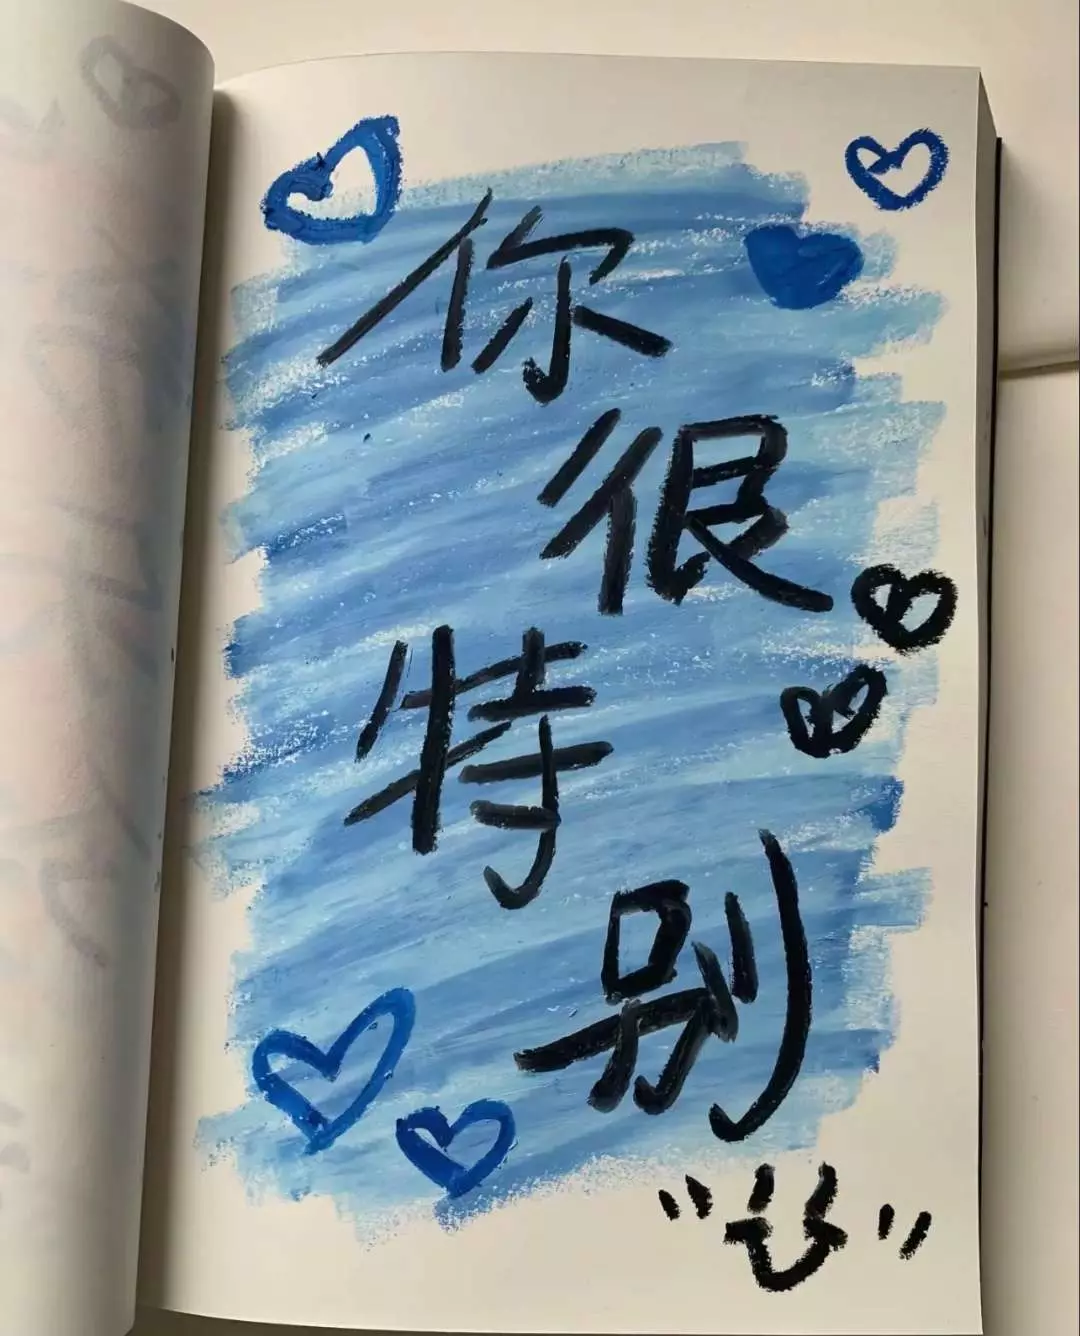 你
很
特
别